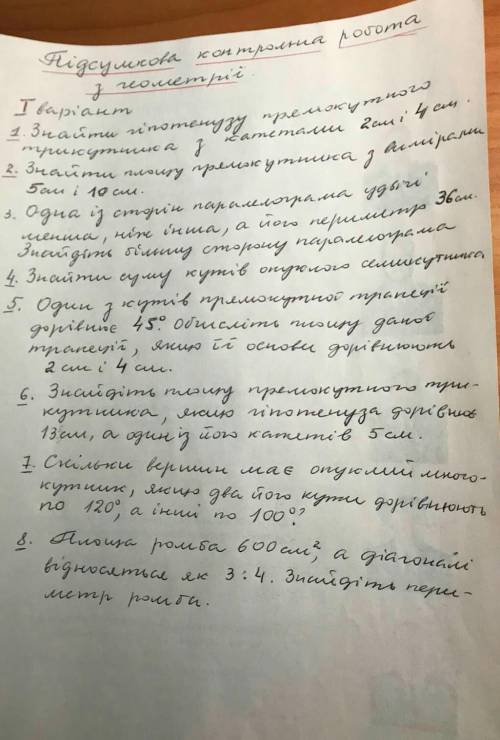 Підсумкова контрольна робота
з геометрії.
I варіант
1. Знайти гіпотенузу прямокутного
трикутника з катетами 2см і 4см.
2. Знайти площу прямокутника з вимірами
5см і 10см.
3. Одна із сторін паралелограма удвічі
менша, ніж інша, а його периметр 36см.
Знайдіть більшу сторону паралелограма
4. Знайти суму кутів опуклого семикутника
5. Один з кутів прямокутної трапеції
дорівнює 45°. Обчисліть площу даної
трапеції, якщо її основи дорівнюють
2см і 4см.
6. Знайдіть площу прямокутного три-
кутника, якщо гіпотенуза дорівнює
13см, а один із його катетів 5см.
7. Скільки вершин має опуклий много-
кутник, якщо два його кути дорівнюють
по 120°, а інші по 100°?
8. Площа ромба 600см², а діагоналі
відносяться як 3:4. Знайдіть пери-
метр ромба.